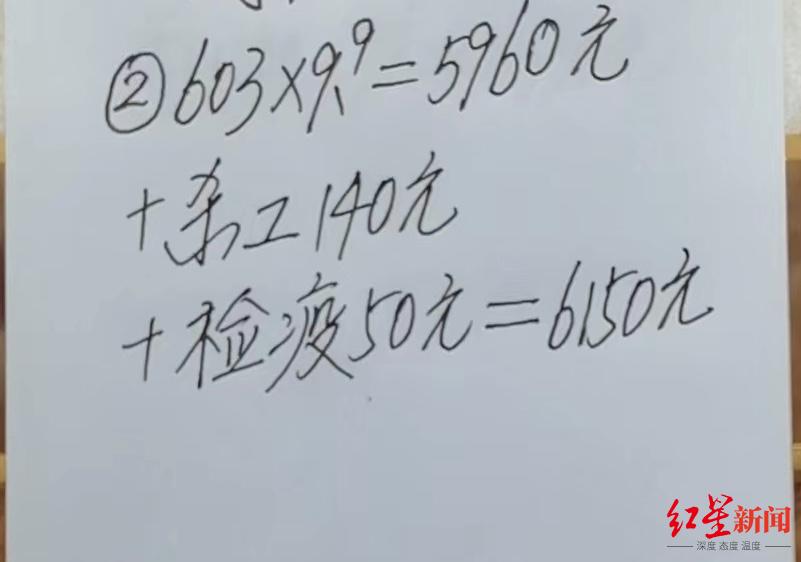 ②603×9.9=5960元
+杀工140元
+检疫50元=6150元
红星新闻
深度 态度 温度